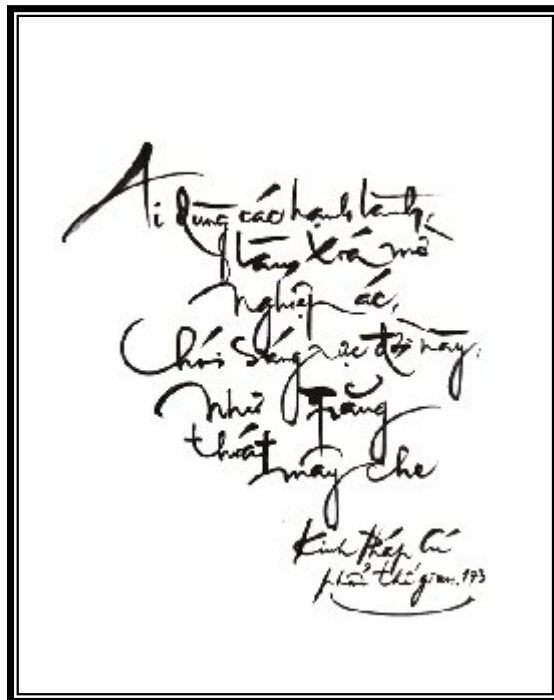 Ai dùng các hạnh lành,
làm xóa mờ
nghiệp ác,
Chói sáng rực đời này,
như Trăng
thoát mây che
Kinh Pháp Cú
phẩm thế gian, 173